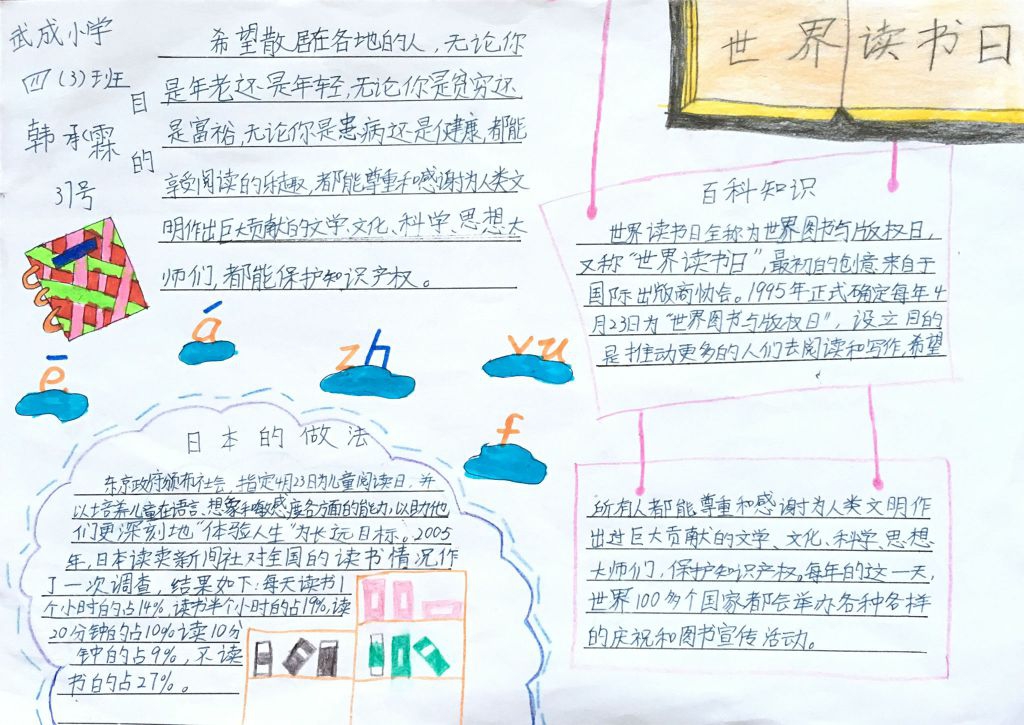 武成小学
四(3)班
韩承霖
37号
目的
希望散居在各地的人,无论你
是年老还是年轻,无论你是贫穷还
是富裕,无论你是患病还是健康,都能
享受阅读的乐趣,都能尊重和感谢为人类文
明作出巨大贡献的文学、文化、科学、思想大
师们,都能保护知识产权。
世界读书日
百科知识
世界读书日全称为世界图书与版权日,
又称“世界读书日”,最初的创意来自于
国际出版商协会。1995年正式确定每年4
月23日为“世界图书与版权日”,设立目的
是推动更多的人们去阅读和写作,希望
所有人都能尊重和感谢为人类文明作
出过巨大贡献的文学、文化、科学、思想
大师们,保护知识产权。每年的这一天,
世界100多个国家都会举办各种各样
的庆祝和图书宣传活动。
ē
á
zh
yu
f
日本的做法
东京政府颁布社会,指定4月23日为儿童阅读日,并
以培养儿童在语言、想象和敏感度各方面的能力,以助他
们更深刻地“体验人生”为长远目标。2005
年,日本读卖新闻社对全国的读书情况作
了一次调查,结果如下:每天读书1
个小时的占14%,读书半个小时的占19%,读
20分钟的占10%,读10分
钟的占9%,不读
书的占27%。